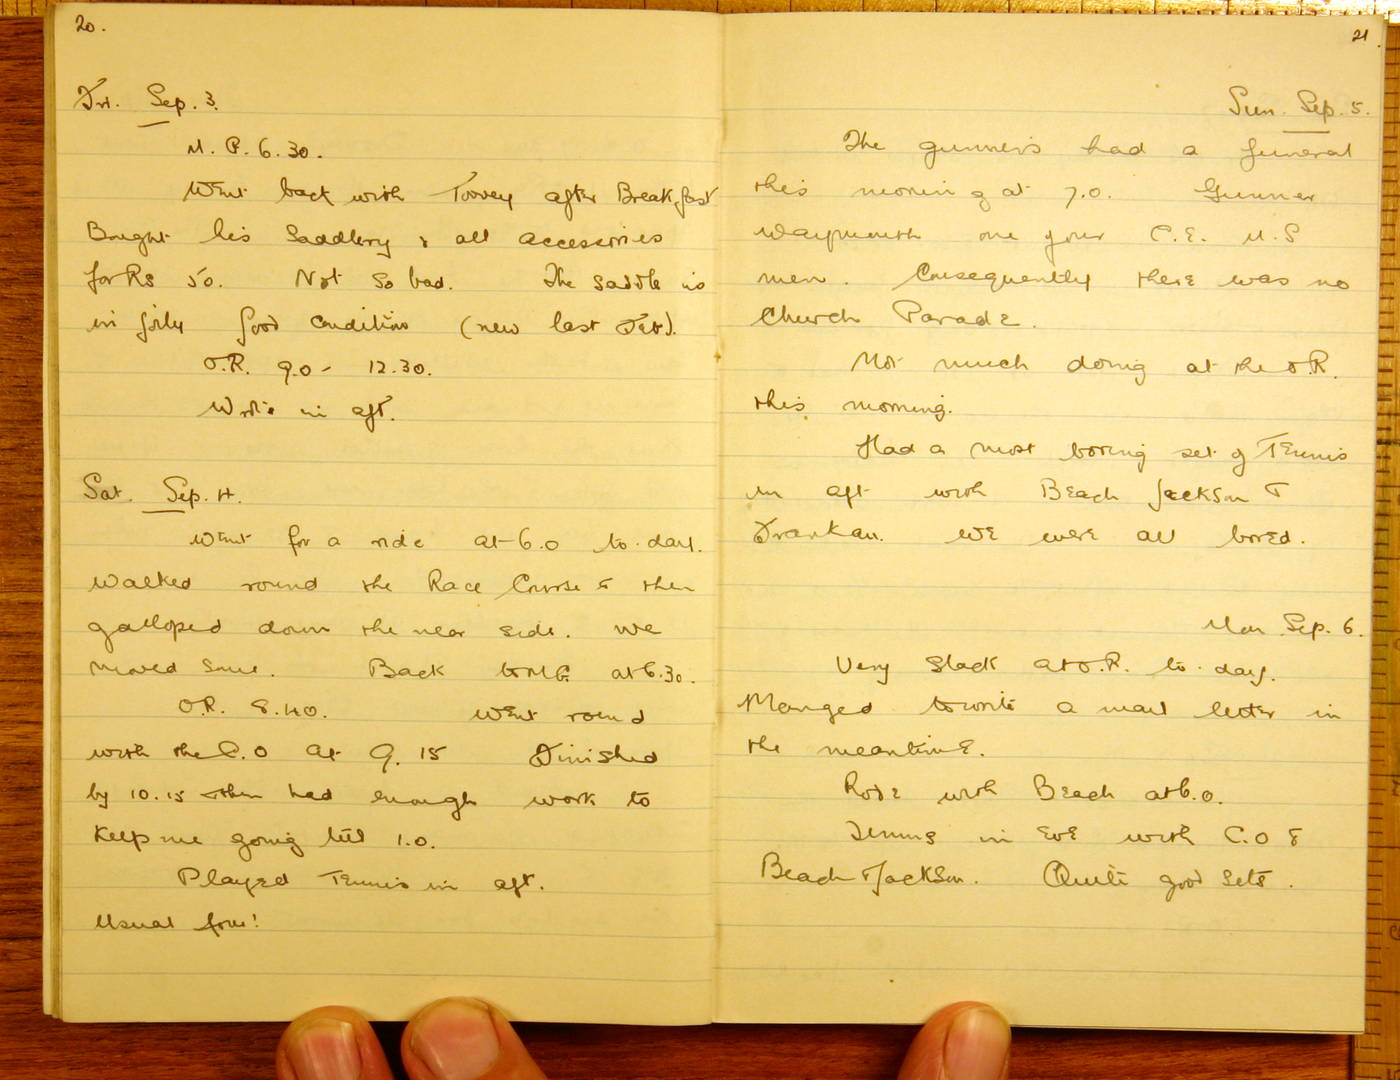 20.
Fri. Sep. 3.
M. P. 6.30.
Went back with Toovey after Breakfast
Bought his Saddlery & all accessories
for Rs 50. Not so bad. The saddle is
in jolly good condition (new last Feb).
O.R. 9.0 - 12.30.
Wrote in aft.
Sat. Sep. 4.
Went for a ride at 6.0 to-day.
Walked round the Race Course & then
galloped down the near side. We
moved some. Back to MG at 6.30.
O.R. 8.40. Went round
with the C.O at 9.15 Finished
by 10.15 then had enough work to
keep me going till 1.0.
Played Tennis in aft.
Usual four!
21.
Sun. Sep. 5.
The gunners had a funeral
this morning at 7.0. Gunner
Waymouth one of our
men. Consequently there was no
Church Parade.
Not much doing at the O.R.
this morning.
Had a most boring set of Tennis
in aft with Beach Jackson &
We were all bored.
Mon Sep. 6.
Very slack at O.R. to-day.
Manged to write a mail letter in
the meantime.
Rode with Beach at 6.0.
Tennis in Eve with C.O &
Beach & Jackson. Quite good sets.